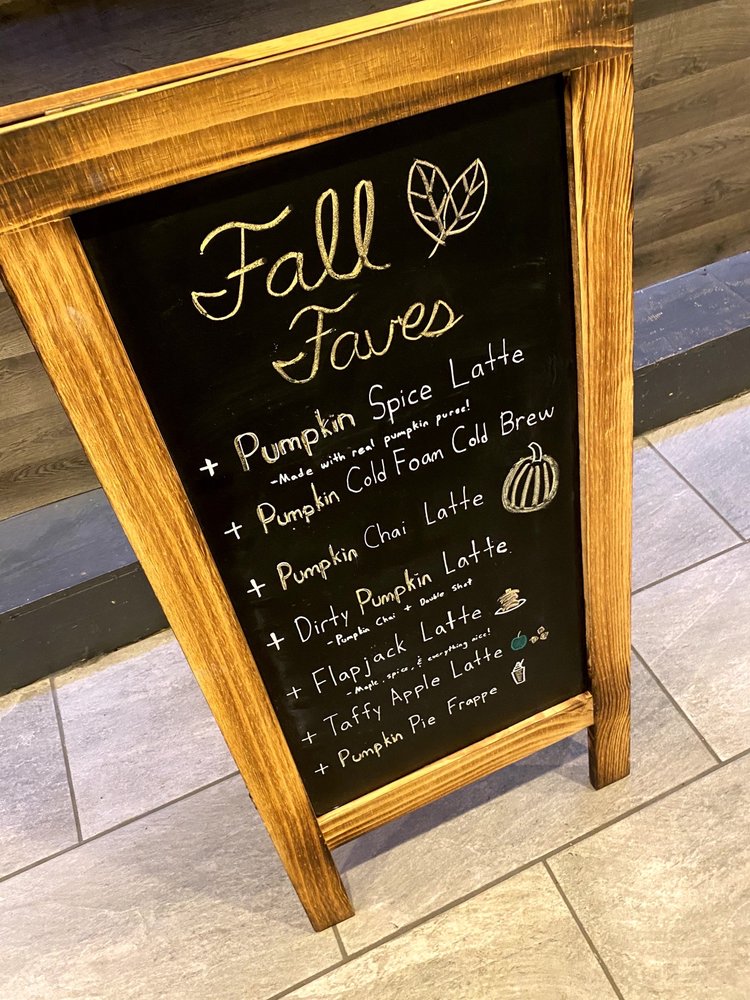 Fall
Faves
+ Pumpkin Spice Latte
-Made with real pumpkin puree!
+ Pumpkin Cold Foam Cold Brew
+ Pumpkin Chai Latte
+ Dirty Pumpkin Latte
-Pumpkin Chai + Double Shot
+ Flapjack Latte
-Maple, spice, & everything nice!
+ Taffy Apple Latte
+ Pumpkin Pie Frappe